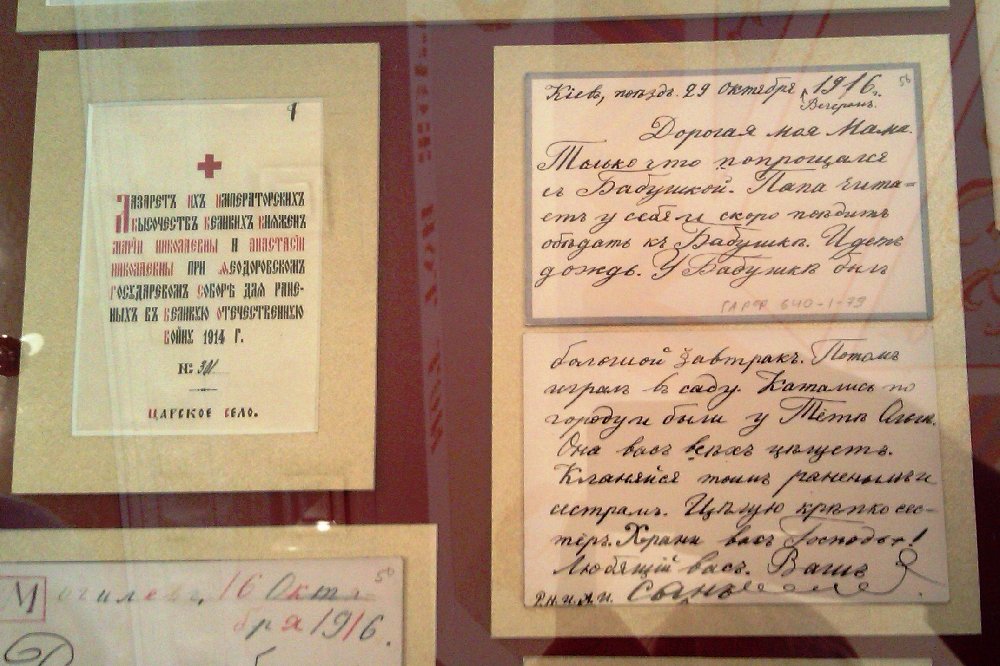 Лазаретъ Ихъ Императорскихъ
Высочествъ Великихъ Княженъ
Маріи Николаевны и Анастасіи
Николаевны при Ѳеодоровскомъ
Государевомъ Соборѣ для ране-
ныхъ въ Великую Отечественную
Войну 1914 г.
№:
Царское Село.
56
Кіевъ, поѣздъ. 29 Октября 1916 г.
Вечеромъ.
Дорогая моя Мама.
Только что попрощался
съ Бабушкой. Папа чита-
етъ у себя и скоро поѣдитъ
обѣдать къ Бабушкѣ. Идетъ
дождь. У Бабушкѣ былъ
ГАРФ 640-1-79
большой завтракъ. Потомъ
игралъ въ саду. Катались по
городу и были у Тёти Ольги.
Она васъ всѣхъ цѣлуетъ.
Кланяйся твоимъ раненымъ и
сестрамъ. Цѣлую крѣпко сес-
теръ. Храни васъ Господь + !
Любящій васъ. Вашъ
Сынъ
50
Могилевъ, 16 Октя-
бря 1916.